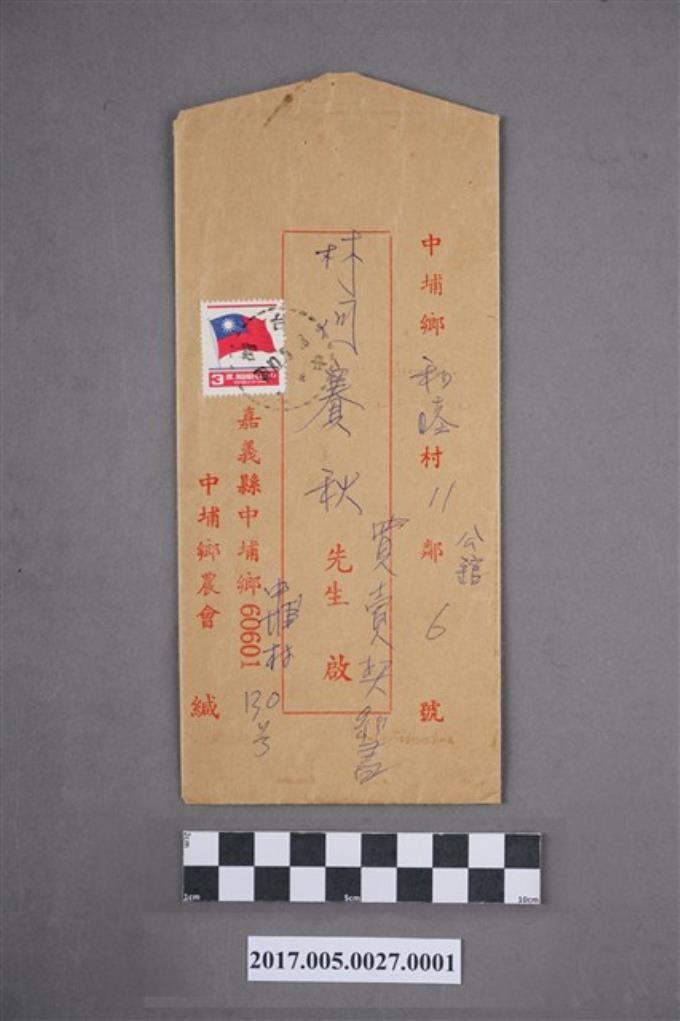 中埔鄉 和睦 村 11 鄰 6 號
公館
林何賽秋 先生 啟
買賣契約書
3
嘉義縣中埔鄉60601
中埔村
130号
中埔鄉農會 緘
2cm
1cm 5cm 10cm
2017.005.0027.0001